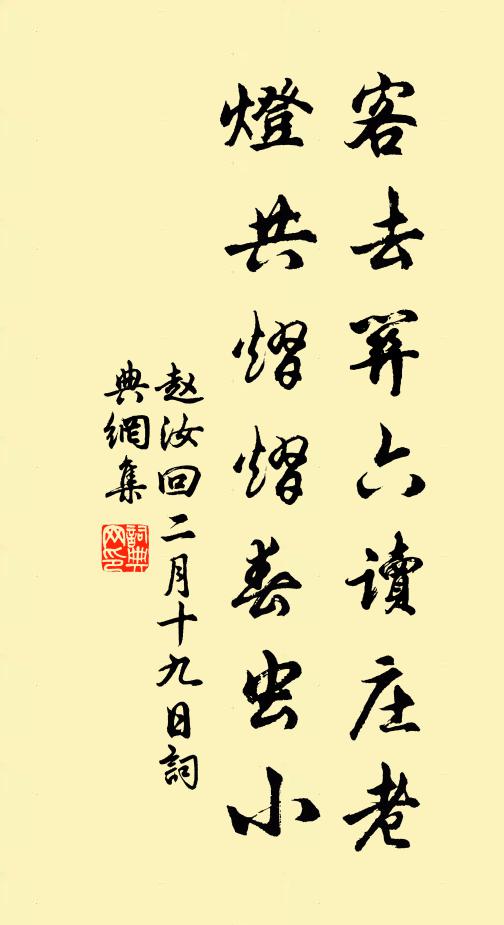 客去六讀庄老
燈共熠熠春虫小
赵汝回二月十九日詞
典網集
詞典
网印